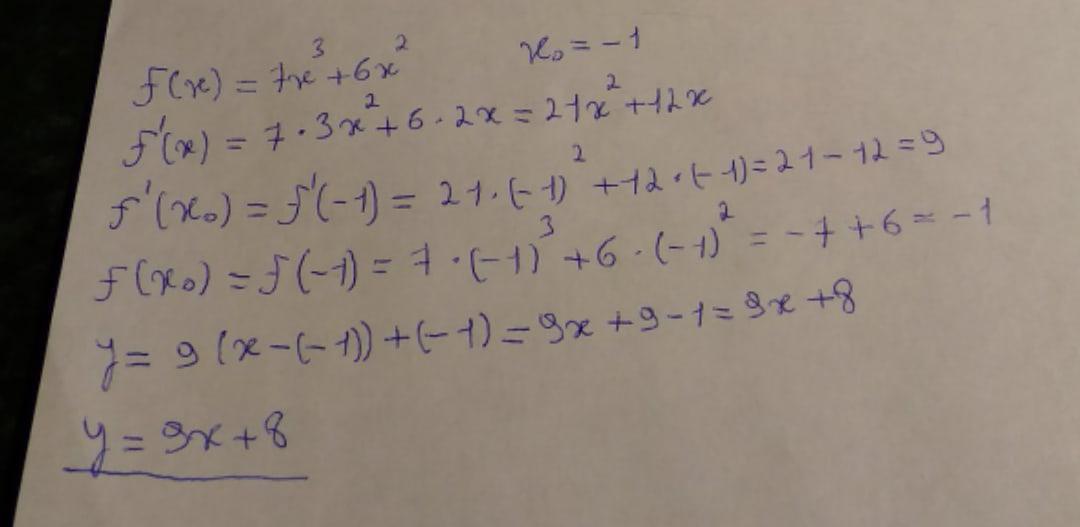 f(x) = 7x³+6x² x₀ = -1
f'(x) = 7·3x²+6·2x = 21x²+12x
f'(x₀) = f'(-1) = 21·(-1)²+12·(-1)=21-12=9
f(x₀) = f(-1) = 7·(-1)³+6·(-1)² = -7+6= -1
y= 9(x-(-1))+(-1)=9x+9-1=9x+8
y = 9x+8